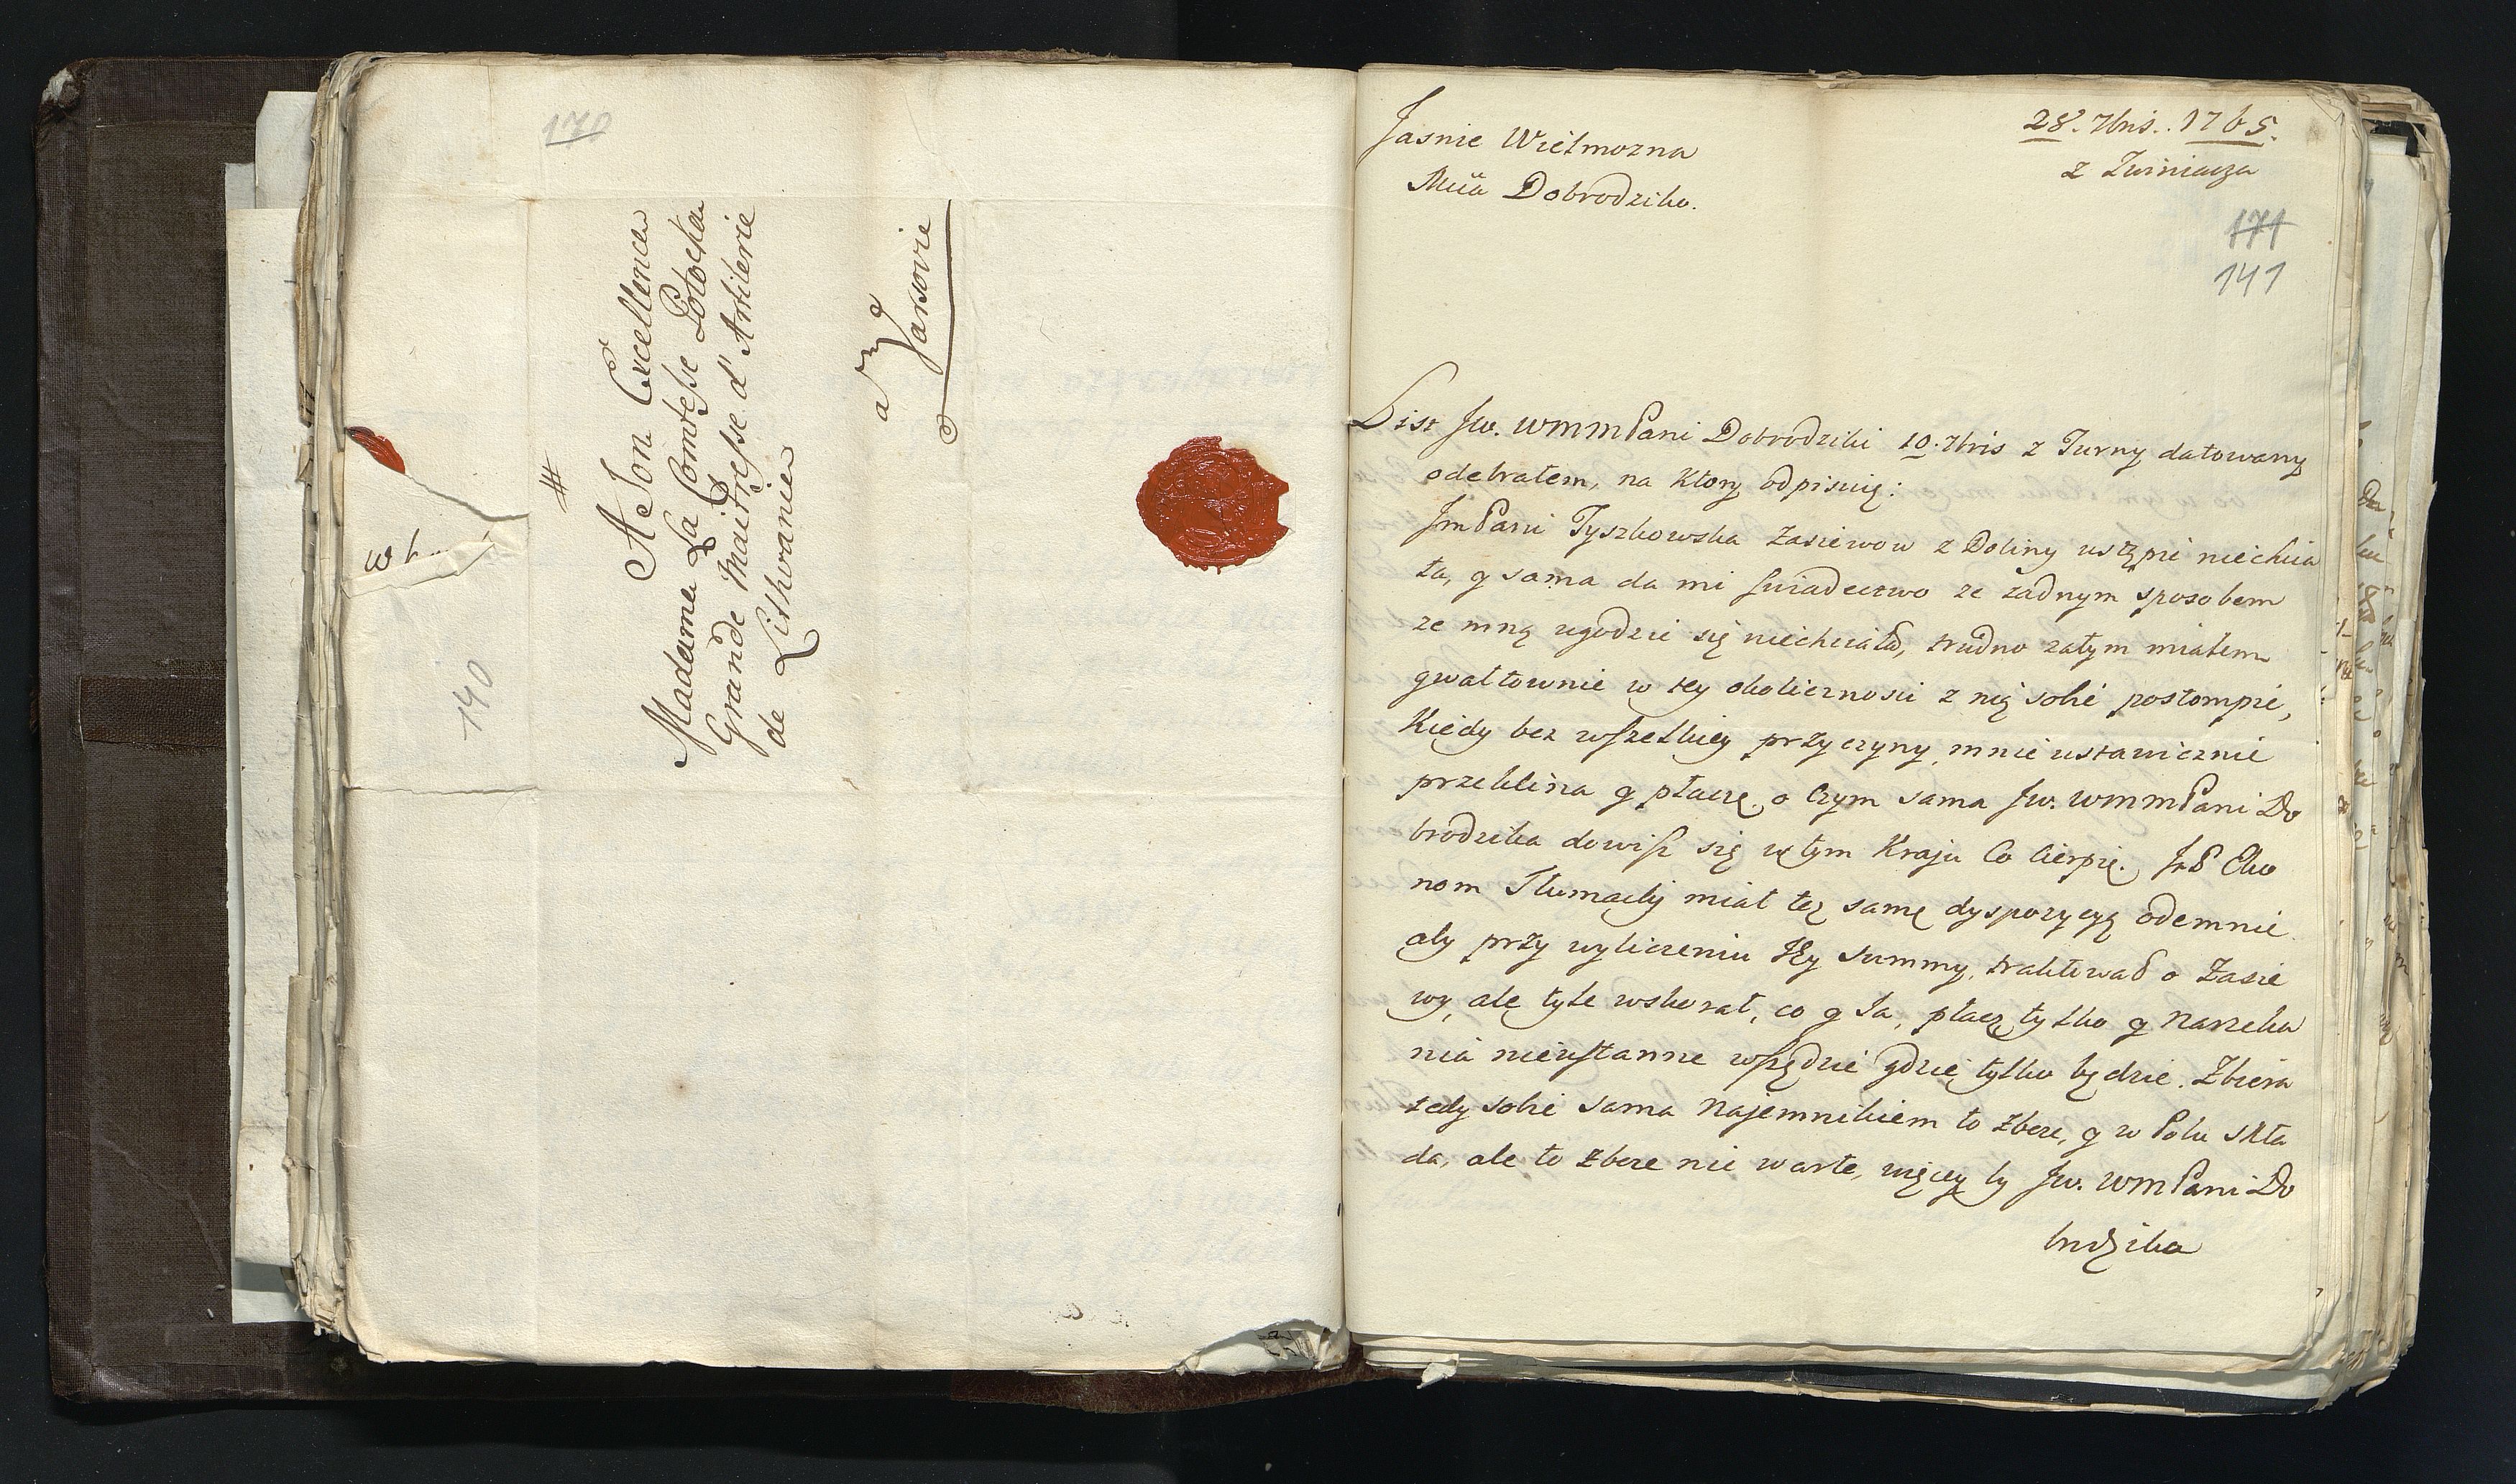 170
#
A Son Excellence
Madame La Comtesse Potocka
Grande Maitresse d'Artilerie
de Lithwanie
a
Varsovie
140
28. 7bris. 1765.
z Zwiniacza
171
141
Jasnie Wielmozna
Mcia Dobrodziko.
List Jw. WMMPani Dobrodziki 10. 7bris z Turny datowany
odebrałem, na ktory odpisuię:
JmPani Tyszkowska Zasiewow z Doliny ustąpic niechcia
ła, y sama da mi swiadectwo ze zadnym sposobem
ze mną ugodzic się niechciała, trudno zatym miałem
gwałtownie w tey okolicznosci z nią sobie postompic,
Kiedy bez wszelkiey przyczyny, mnie ustawicznie
przeklina y płacze, o czym sama Jw. WMMPani Do
brodzika dowisz się w tym Kraju Co Cierpię. JP Eko
nom Tłumacki miał tęz samę dyspozycyą odemnie
aby przy wyliczeniu tey summy, traktował o Zasie
wy, ale tyle wskurał, co y Ja, płacz tylko y Narzeka
nia nieustanne wszędzie gdzie tylko będzie. Zbiera
tedy sobie sama Najemnikiem to zboze, y w Polu skła
da, ale to zboze nie warte, więcey by Jw. WMPani Do
brodzika